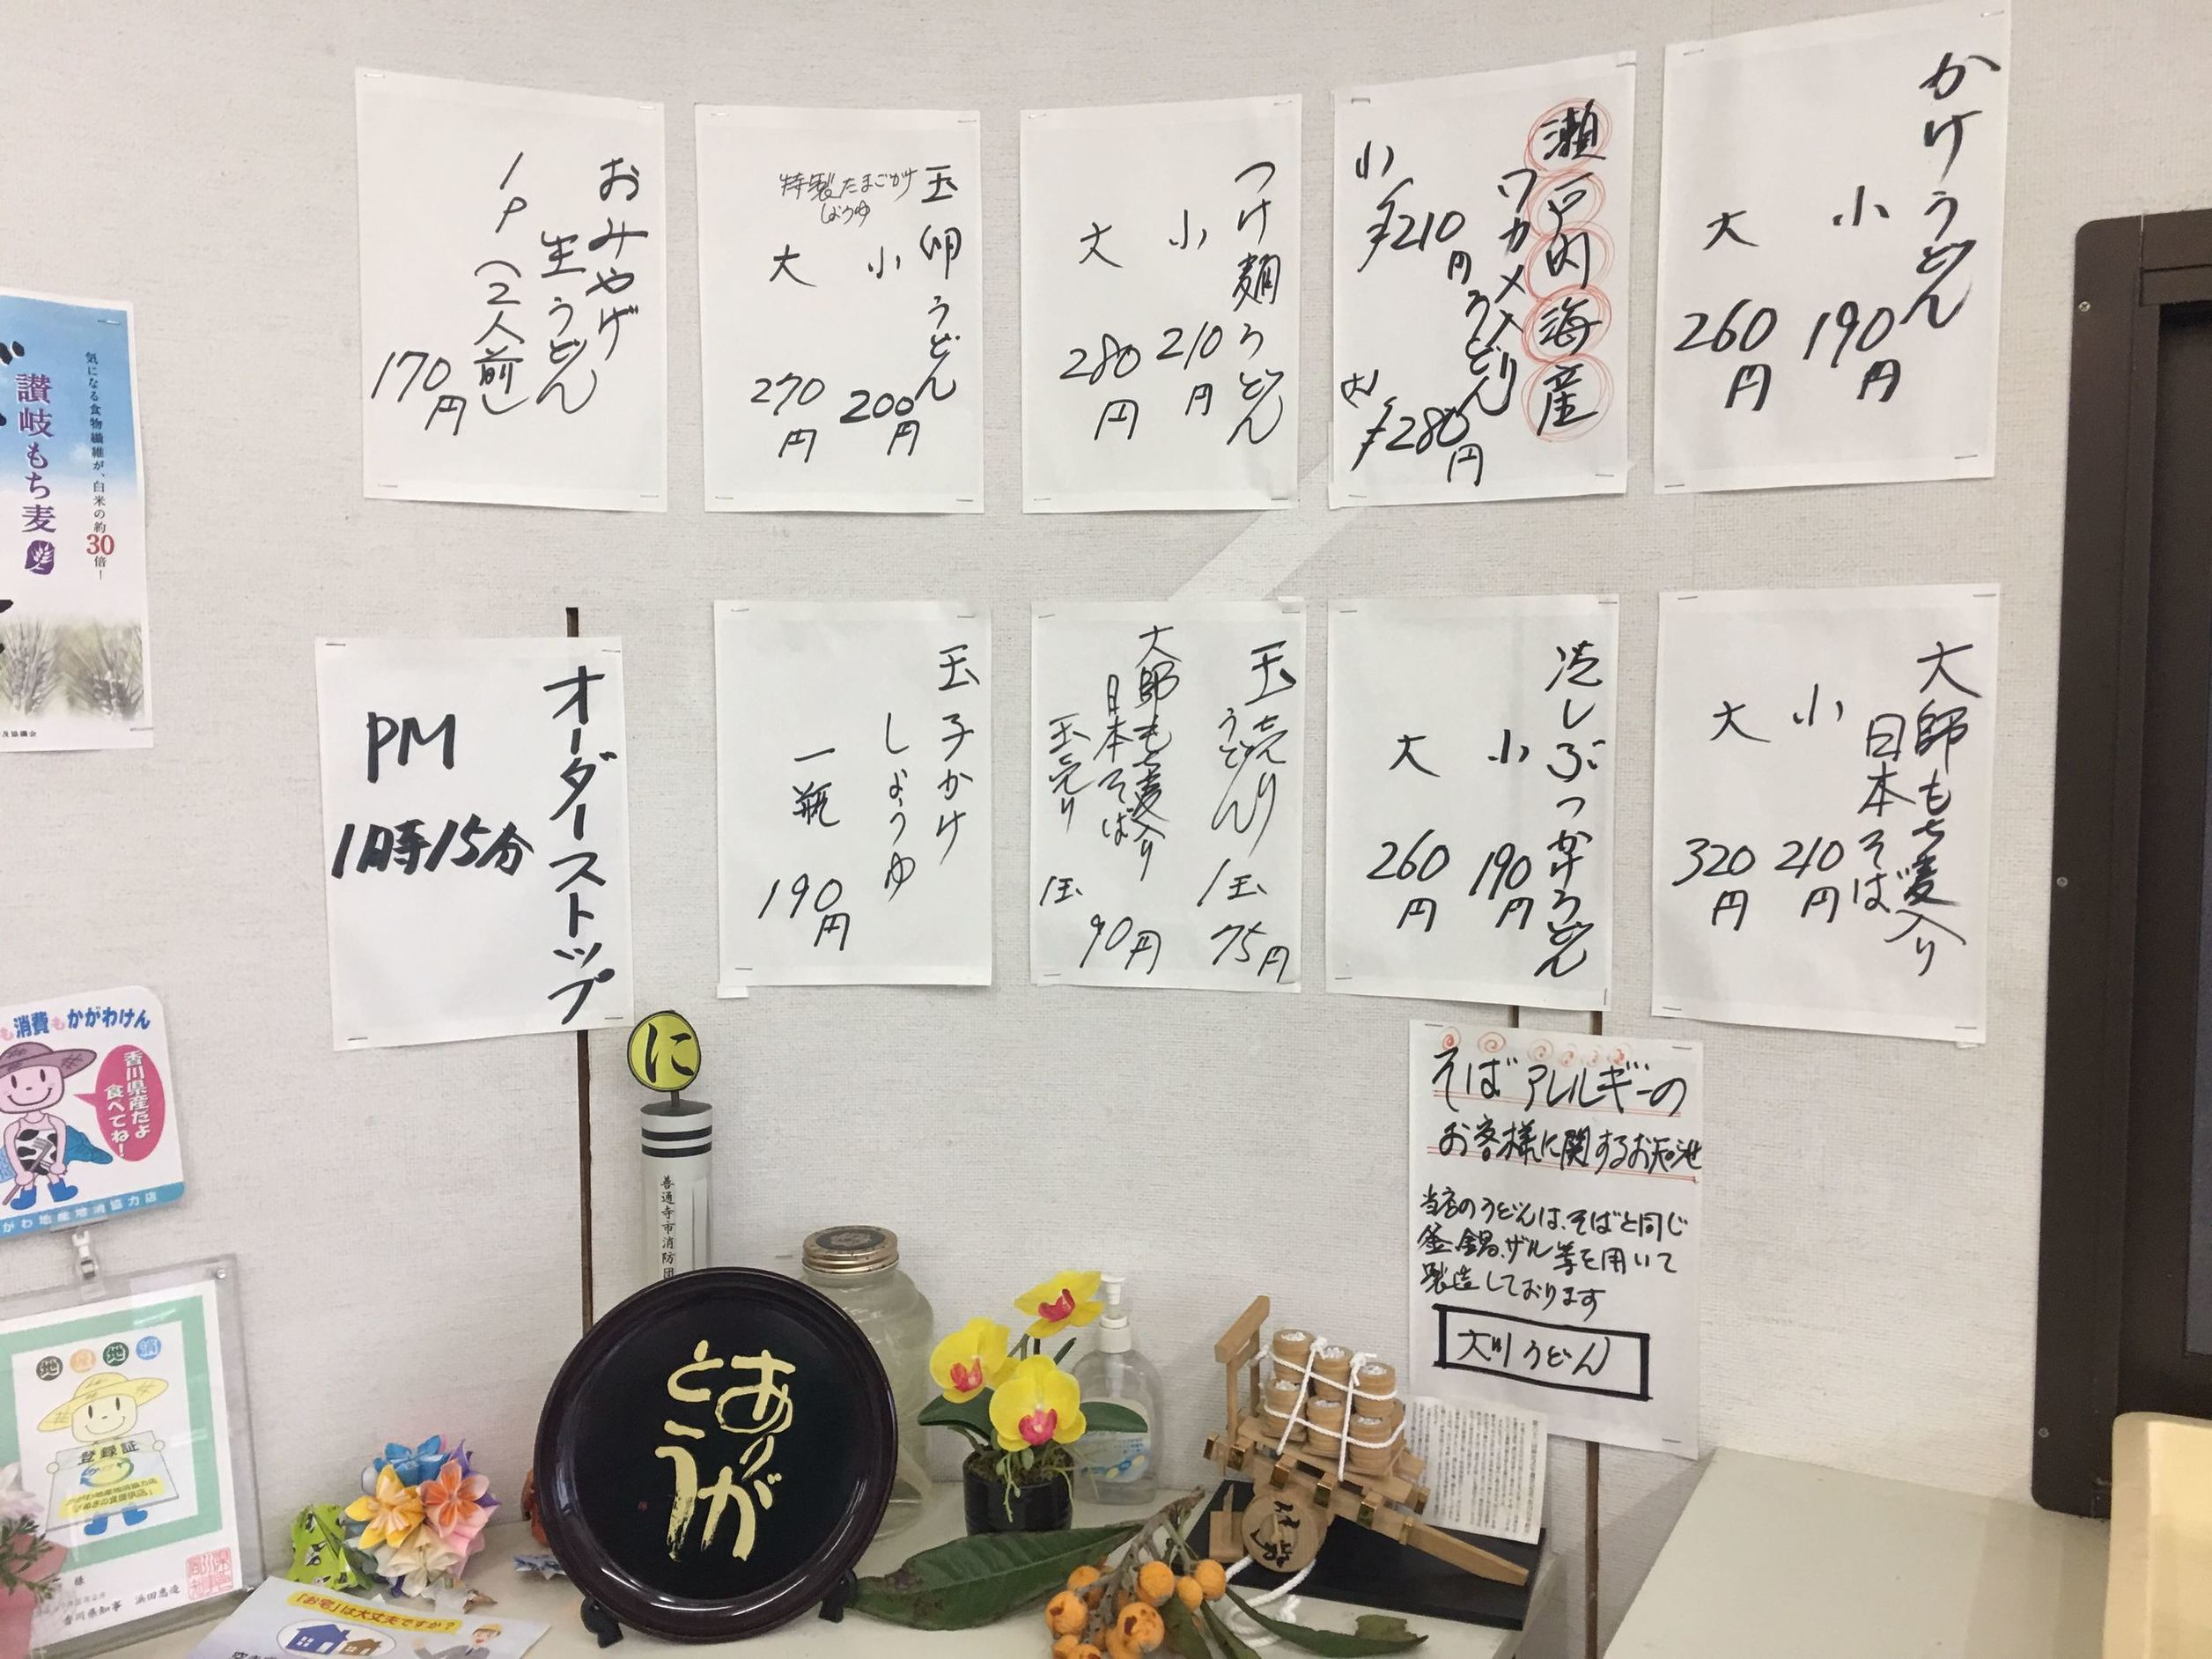 かけうどん
小 190円
大 260円
瀬戸内海産
ワカメ入り
うどん
小 ¥210円
大 ¥280円
つけ麺うどん
小 210円
大 280円
玉卵うどん
特製たまごかけ
しょうゆ
小 200円
大 270円
おみやげ
生うどん
1P(2人前)
170円
大師もち麦入り
日本そば
小 210円
大 320円
冷しぶっかけうどん
小 190円
大 260円
玉売り
うどん
1玉 75円
大師もち麦入り
日本そば
玉売り
1玉 90円
玉子かけ
しょうゆ
一瓶 190円
オーダーストップ
PM
1時15分
そばアレルギーの
お客様に関するお知せ
当店のうどんは、そばと同じ
釜、鍋、ザル等を用いて
製造しております
大川うどん
気になる食物繊維が、白米の約30倍!
讃岐もち麦
及協議会
も消費もかがわけん
香川県産だよ
食べてね!
がわ地産地消協力店
地産地消
登録証
様
香川県知事 浜田恵造
に
善通寺市消防団
ありが
とう
「お宅」は大丈夫ですか?